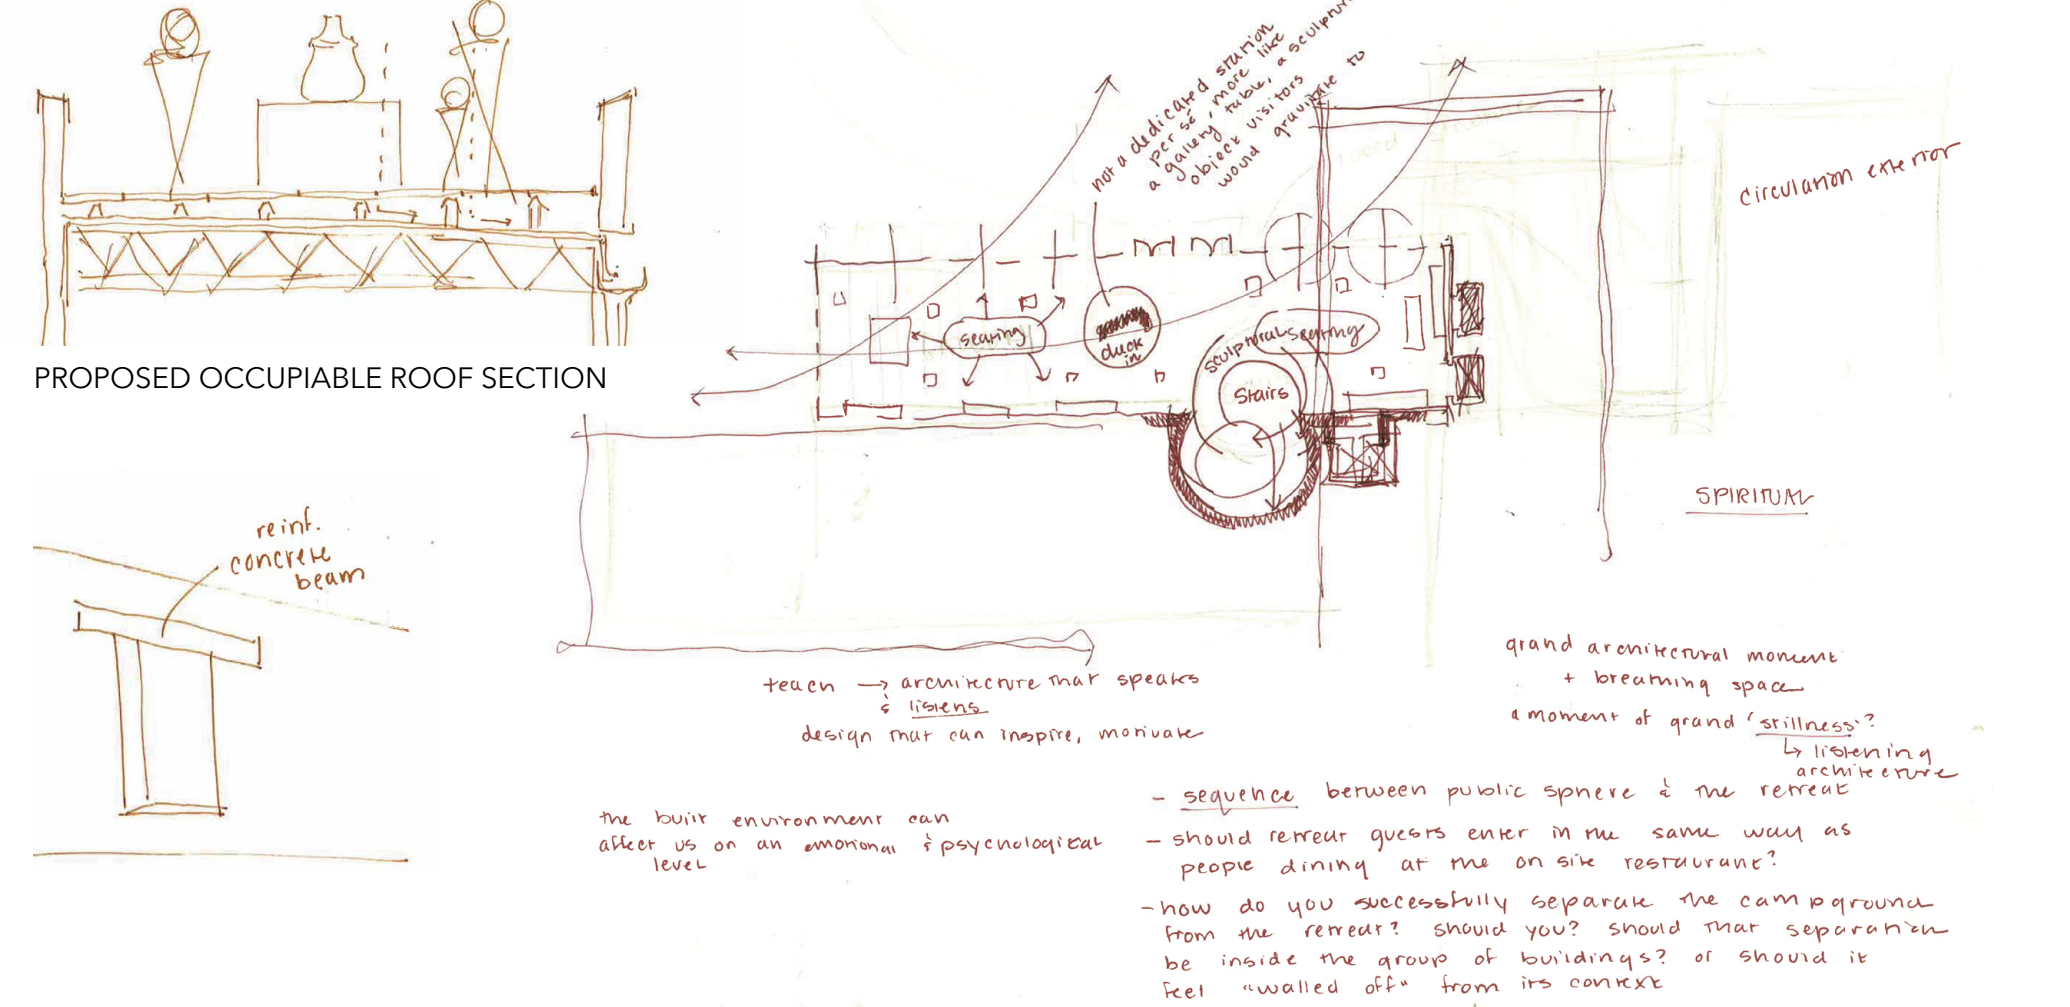 PROPOSED OCCUPIABLE ROOF SECTION
reinf.
concrete
beam
not a dedicated station
per sé, more like
a gallery table, a sculptural
object visitors
would gravitate to
circulation exterior
seating
check
in
sculptural seating
Stairs
SPIRITUAL
teach → architecture that speaks
& listens
design that can inspire, motivate
the built environment can
affect us on an emotional & psychological
level
grand architectural moment
+ breathing space
a moment of grand 'stillness'?
↳ listening
architecture
- sequence between public sphere & the retreat
- should retreat guests enter in the same way as
people dining at the on site restaurant?
- how do you successfully separate the campground
from the retreat? should you? should that separation
be inside the group of buildings? or should it
feel "walled off" from its context